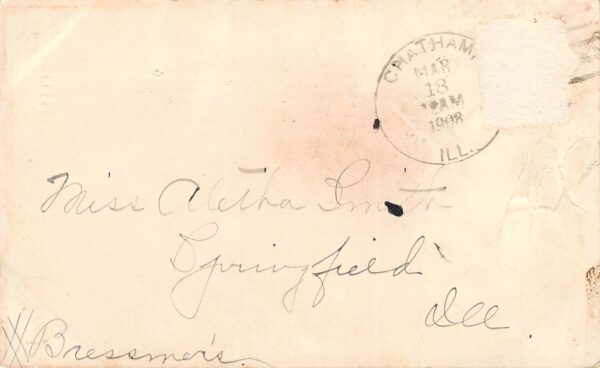 CHATHAM,
MAR
18
12AM
1908
ILL.
Miss Aletha Smith
Springfield
Ill.
Bressmer's